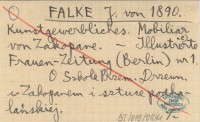 O FALKE J. von 1890.
Kunstgewerbliches Mobiliar
von Zakopane. — Illustrirte
Frauen-Zeitung (Berlin) nr 1.
O Szkole Przem. Drzewn.
w Zakopanem i sztuce podha-
lańskiej.